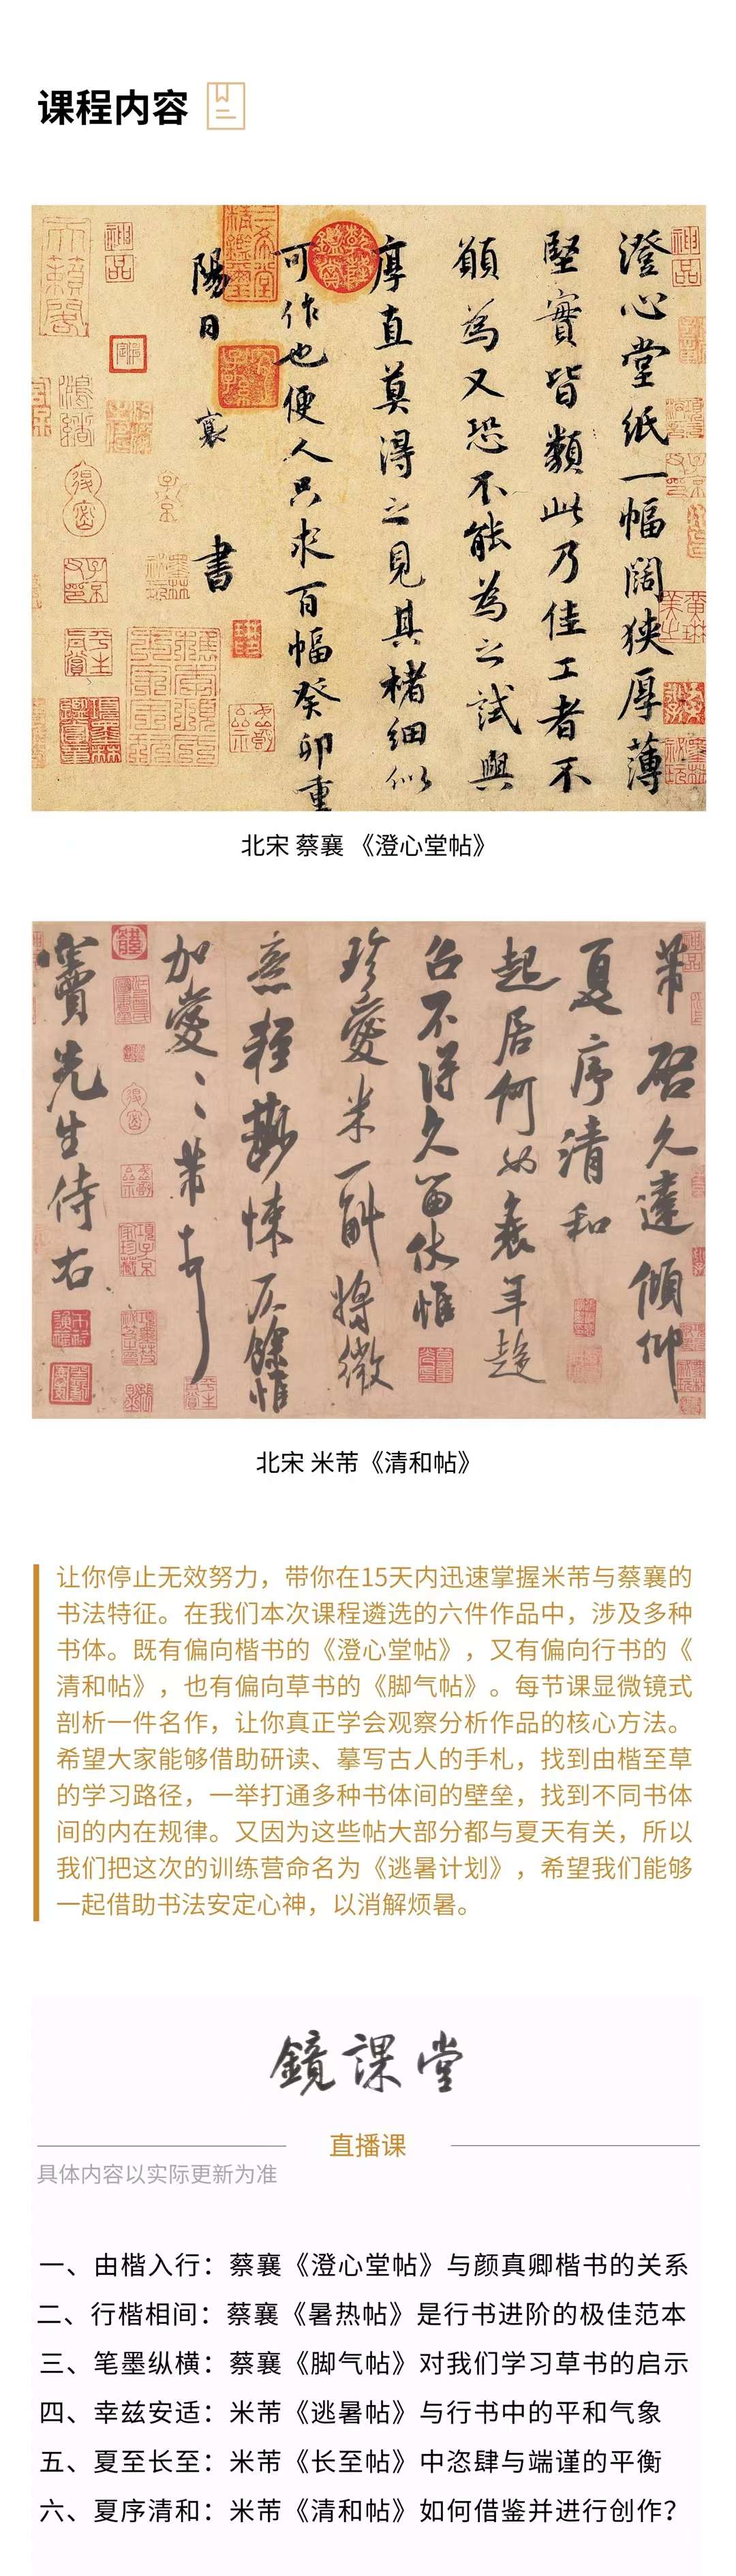 课程内容
澄心堂纸一幅阔狭厚薄
堅實皆類此乃佳工者不
願為又恐不能為之試與
厚直莫得之見其楮細似
可作也便人只求百幅癸卯重
陽日 襄 書
北宋 蔡襄 《澄心堂帖》
芾啓久違傾仰
夏序清和
起居何如衰年趍
召不得久留伏惟
珍愛米一斛將微
意輕尠悚仄餘惟
加愛加愛芾頓首
竇先生侍右
北宋 米芾《清和帖》
让你停止无效努力，带你在15天内迅速掌握米芾与蔡襄的
书法特征。在我们本次课程遴选的六件作品中，涉及多种
书体。既有偏向楷书的《澄心堂帖》，又有偏向行书的《
清和帖》，也有偏向草书的《脚气帖》。每节课显微镜式
剖析一件名作，让你真正学会观察分析作品的核心方法。
希望大家能够借助研读、摹写古人的手札，找到由楷至草
的学习路径，一举打通多种书体间的壁垒，找到不同书体
间的内在规律。又因为这些帖大部分都与夏天有关，所以
我们把这次的训练营命名为《逃暑计划》，希望我们能够
一起借助书法安定心神，以消解烦暑。
鏡課堂
直播课
具体内容以实际更新为准
一、由楷入行：蔡襄《澄心堂帖》与颜真卿楷书的关系
二、行楷相间：蔡襄《暑热帖》是行书进阶的极佳范本
三、笔墨纵横：蔡襄《脚气帖》对我们学习草书的启示
四、幸兹安适：米芾《逃暑帖》与行书中的平和气象
五、夏至长至：米芾《长至帖》中恣肆与端谨的平衡
六、夏序清和：米芾《清和帖》如何借鉴并进行创作？